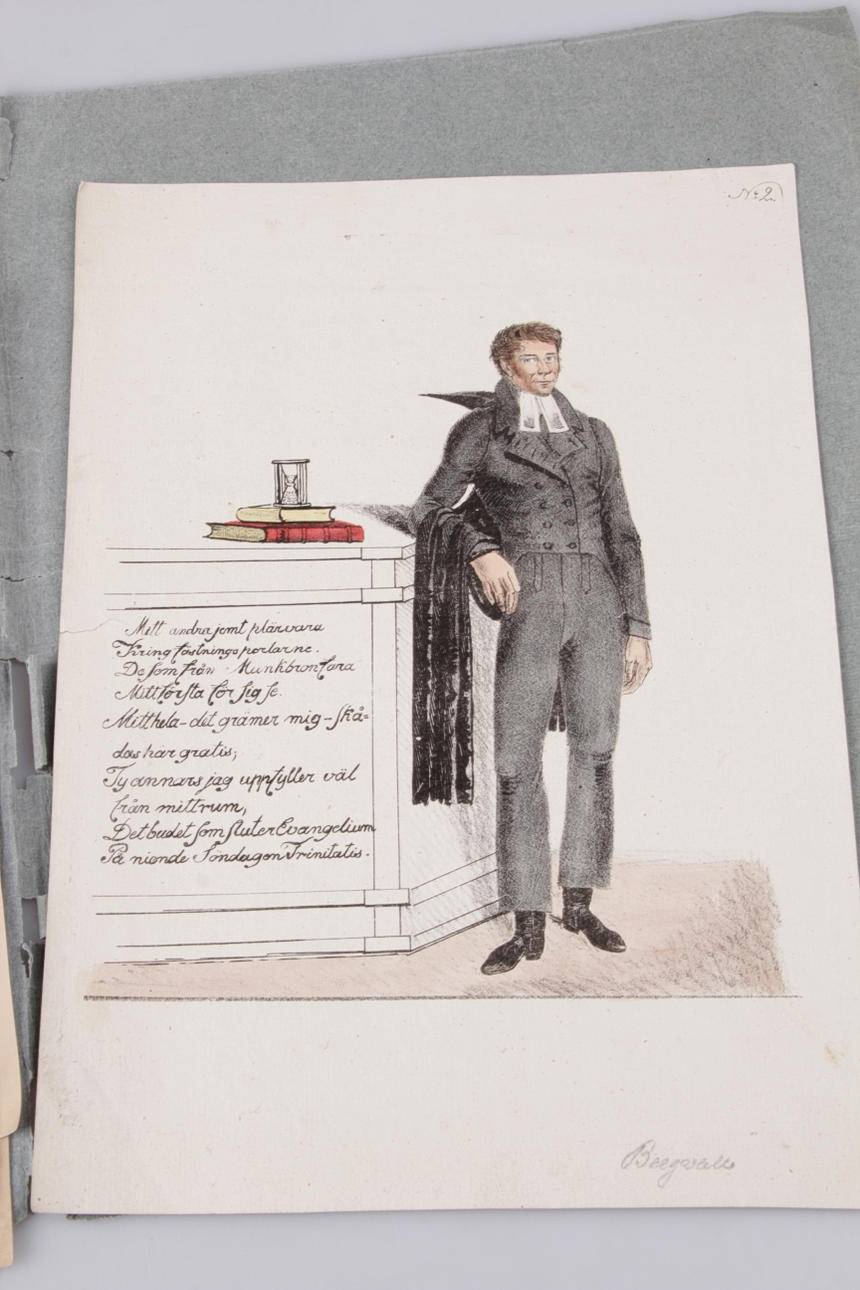 No 2.
Mitt andra jemt plär vara
Kring fästningsporlarne.
De som från Munkbron fara
Mitt första för sig se.
Mitt hela - det grämer mig - skå=
das här gratis;
Ty annars jag uppfyller väl
från mitt rum,
Det budet som sluter Evangelium
På nionde Söndagen Trinitatis.
Bergwall